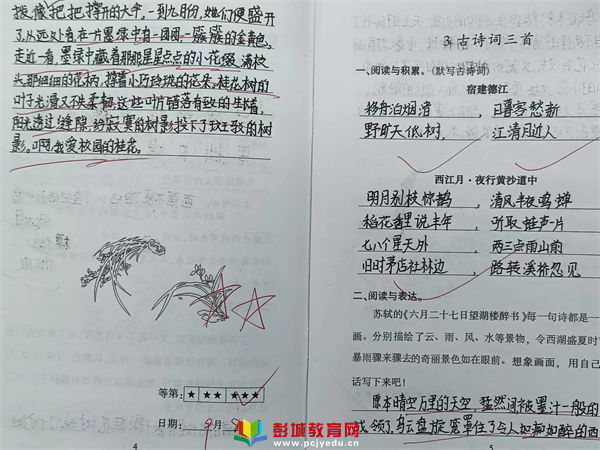 拨像把把撑开的大伞,一到九月份,她们便盛开
了从远处看在一片墨绿中有一团团一簇簇的金黄色,
走近看,墨绿中藏着那星星点点的小花缀满枝
头那细细的花柄,撑着小巧玲珑的花朵,桂花树的
叶子光滑又秩柔韧这些叶片错落有致的生长着,
阳光透过缝隙,给寂寞的树影投下了斑斑驳驳的树
影。啊,我爱校园的桂花。
等第:★ ★★ ★★★
日期: 9月8
4
3 古诗词三首
一、阅读与积累。(默写古诗词)
宿建德江
移舟泊烟渚,日暮客愁新
野旷天低树,江清月近人
西江月·夜行黄沙道中
明月别枝惊鹊,清风半夜鸣蝉
稻花香里说丰年,听取蛙声一片
七八个星天外,两三点雨山前
旧时茅店社林边,路转溪桥忽见
二、阅读与表达。
苏轼的《六月二十七日望湖楼醉书》每一句诗都是一
画。分别描绘了云、雨、风、水等景物,令西湖盛夏时
暴雨骤来骤去的奇丽景色如在眼前。想象画面,用自己
话写下来吧!
原本晴空万里的天空,猛然间被墨汁一般的
成领了乌云盘旋笼罩住了与人如痴如醉的西
5
彭城教育网
www.pcjyedu.cn